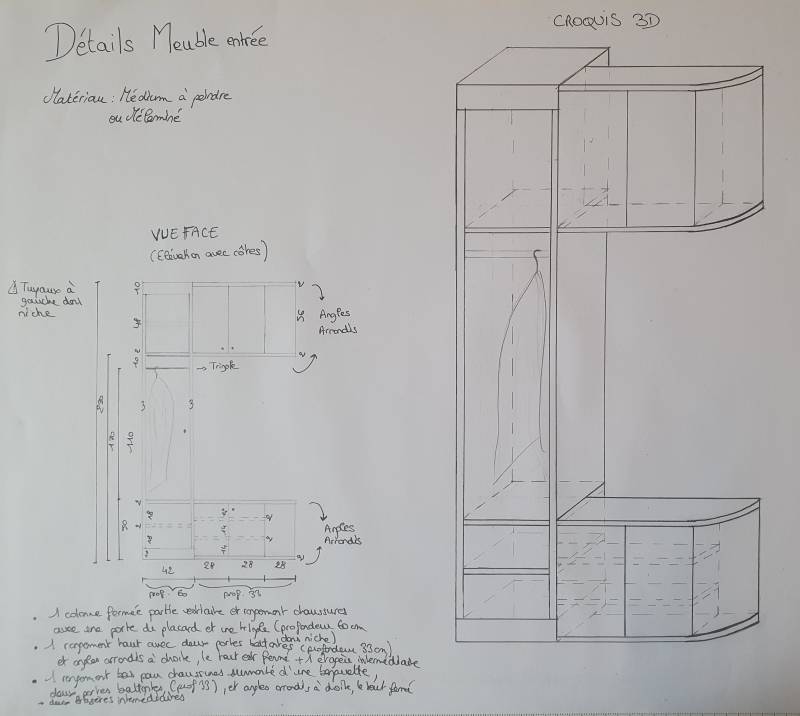 Détails Meuble entrée
CROQUIS 3D
Matériau : Médium à peindre
ou Mélaminé
VUE FACE
(Elévation avec côtes)
⚠ Tuyaux à
gauche dans
niche
Angles
Arrondis
56
→ Tringle
3
3
220
120
110
Angles
Arrondis
42
28
28
28
prof. 60
prof. 33
• 1 colonne fermée partie vestiaire et rangement chaussures
avec une porte de placard et une tringle (profondeur 60 cm
dans niche)
• 1 rangement haut avec deux portes battantes (profondeur 33 cm)
et angles arrondis à droite, le tout est fermé + 1 étagère intermédiaire
• 1 rangement bas pour chaussures surmonté d'une banquette,
deux portes battantes (prof 33), et angles arrondis à droite, le tout fermé
+ deux étagères intermédiaires